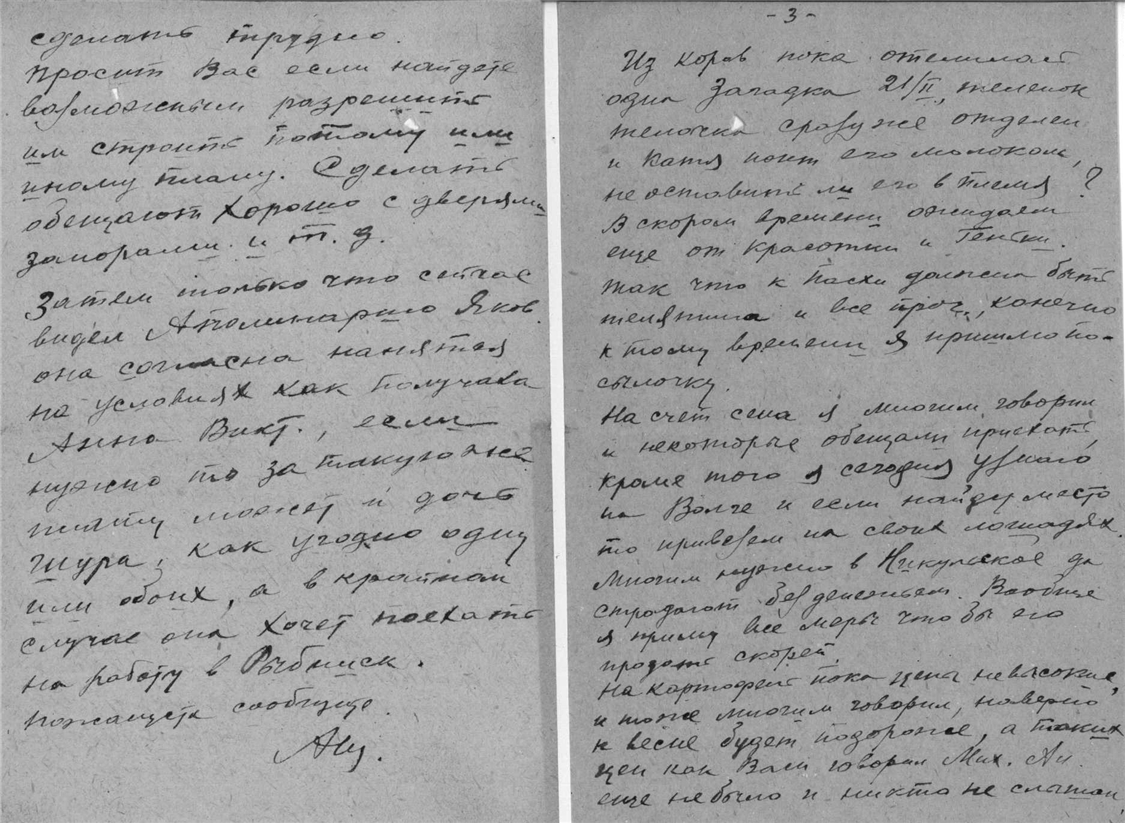 сделать трудно.
просит Вас если найдете
возможным разрешить
им строить потому или
иному плану. Сделать
обещают хорошо с дверями
запорами и т. д.
Затем только что сейчас
видел Аполинарию Яков.
она согласна нанятся
на условиях как получала
Анна Викт., если
нужно то за такую же
плату может и дочь
Шура, как угодно одну
или обоих, а в крайнем
случае она хочет поехать
на работу в Рыбинск.
пожалуста сообщите.
- 3 -
Из коров пока отелилась
одна Загадка 21/II, теленок
телочка сразуже отделен
и Катя поит его молоком,
не оставить ли его в племя?
В скором времени ожидаем
еще от красотки и
так что к Пасхи должна быть
телятина и все проч., конечно
к тому времени я пришлю по-
сылочку.
На счет сена я многим говорил
и некоторые обещали приехать,
кроме того я сегодня узнаю
на Волге и если найду место
то привезем на своих лошадях.
Многим нужно в Никульское да
страдают безденежьем. Вообще
я приму все меры что бы его
продать скорей
на картофель пока цены невысокие,
и тоже многим говорил, наверно
к весне будет подороже, а таких
цен как Вам говорил Мих. Ан.
еще небыло и никто не слышал,